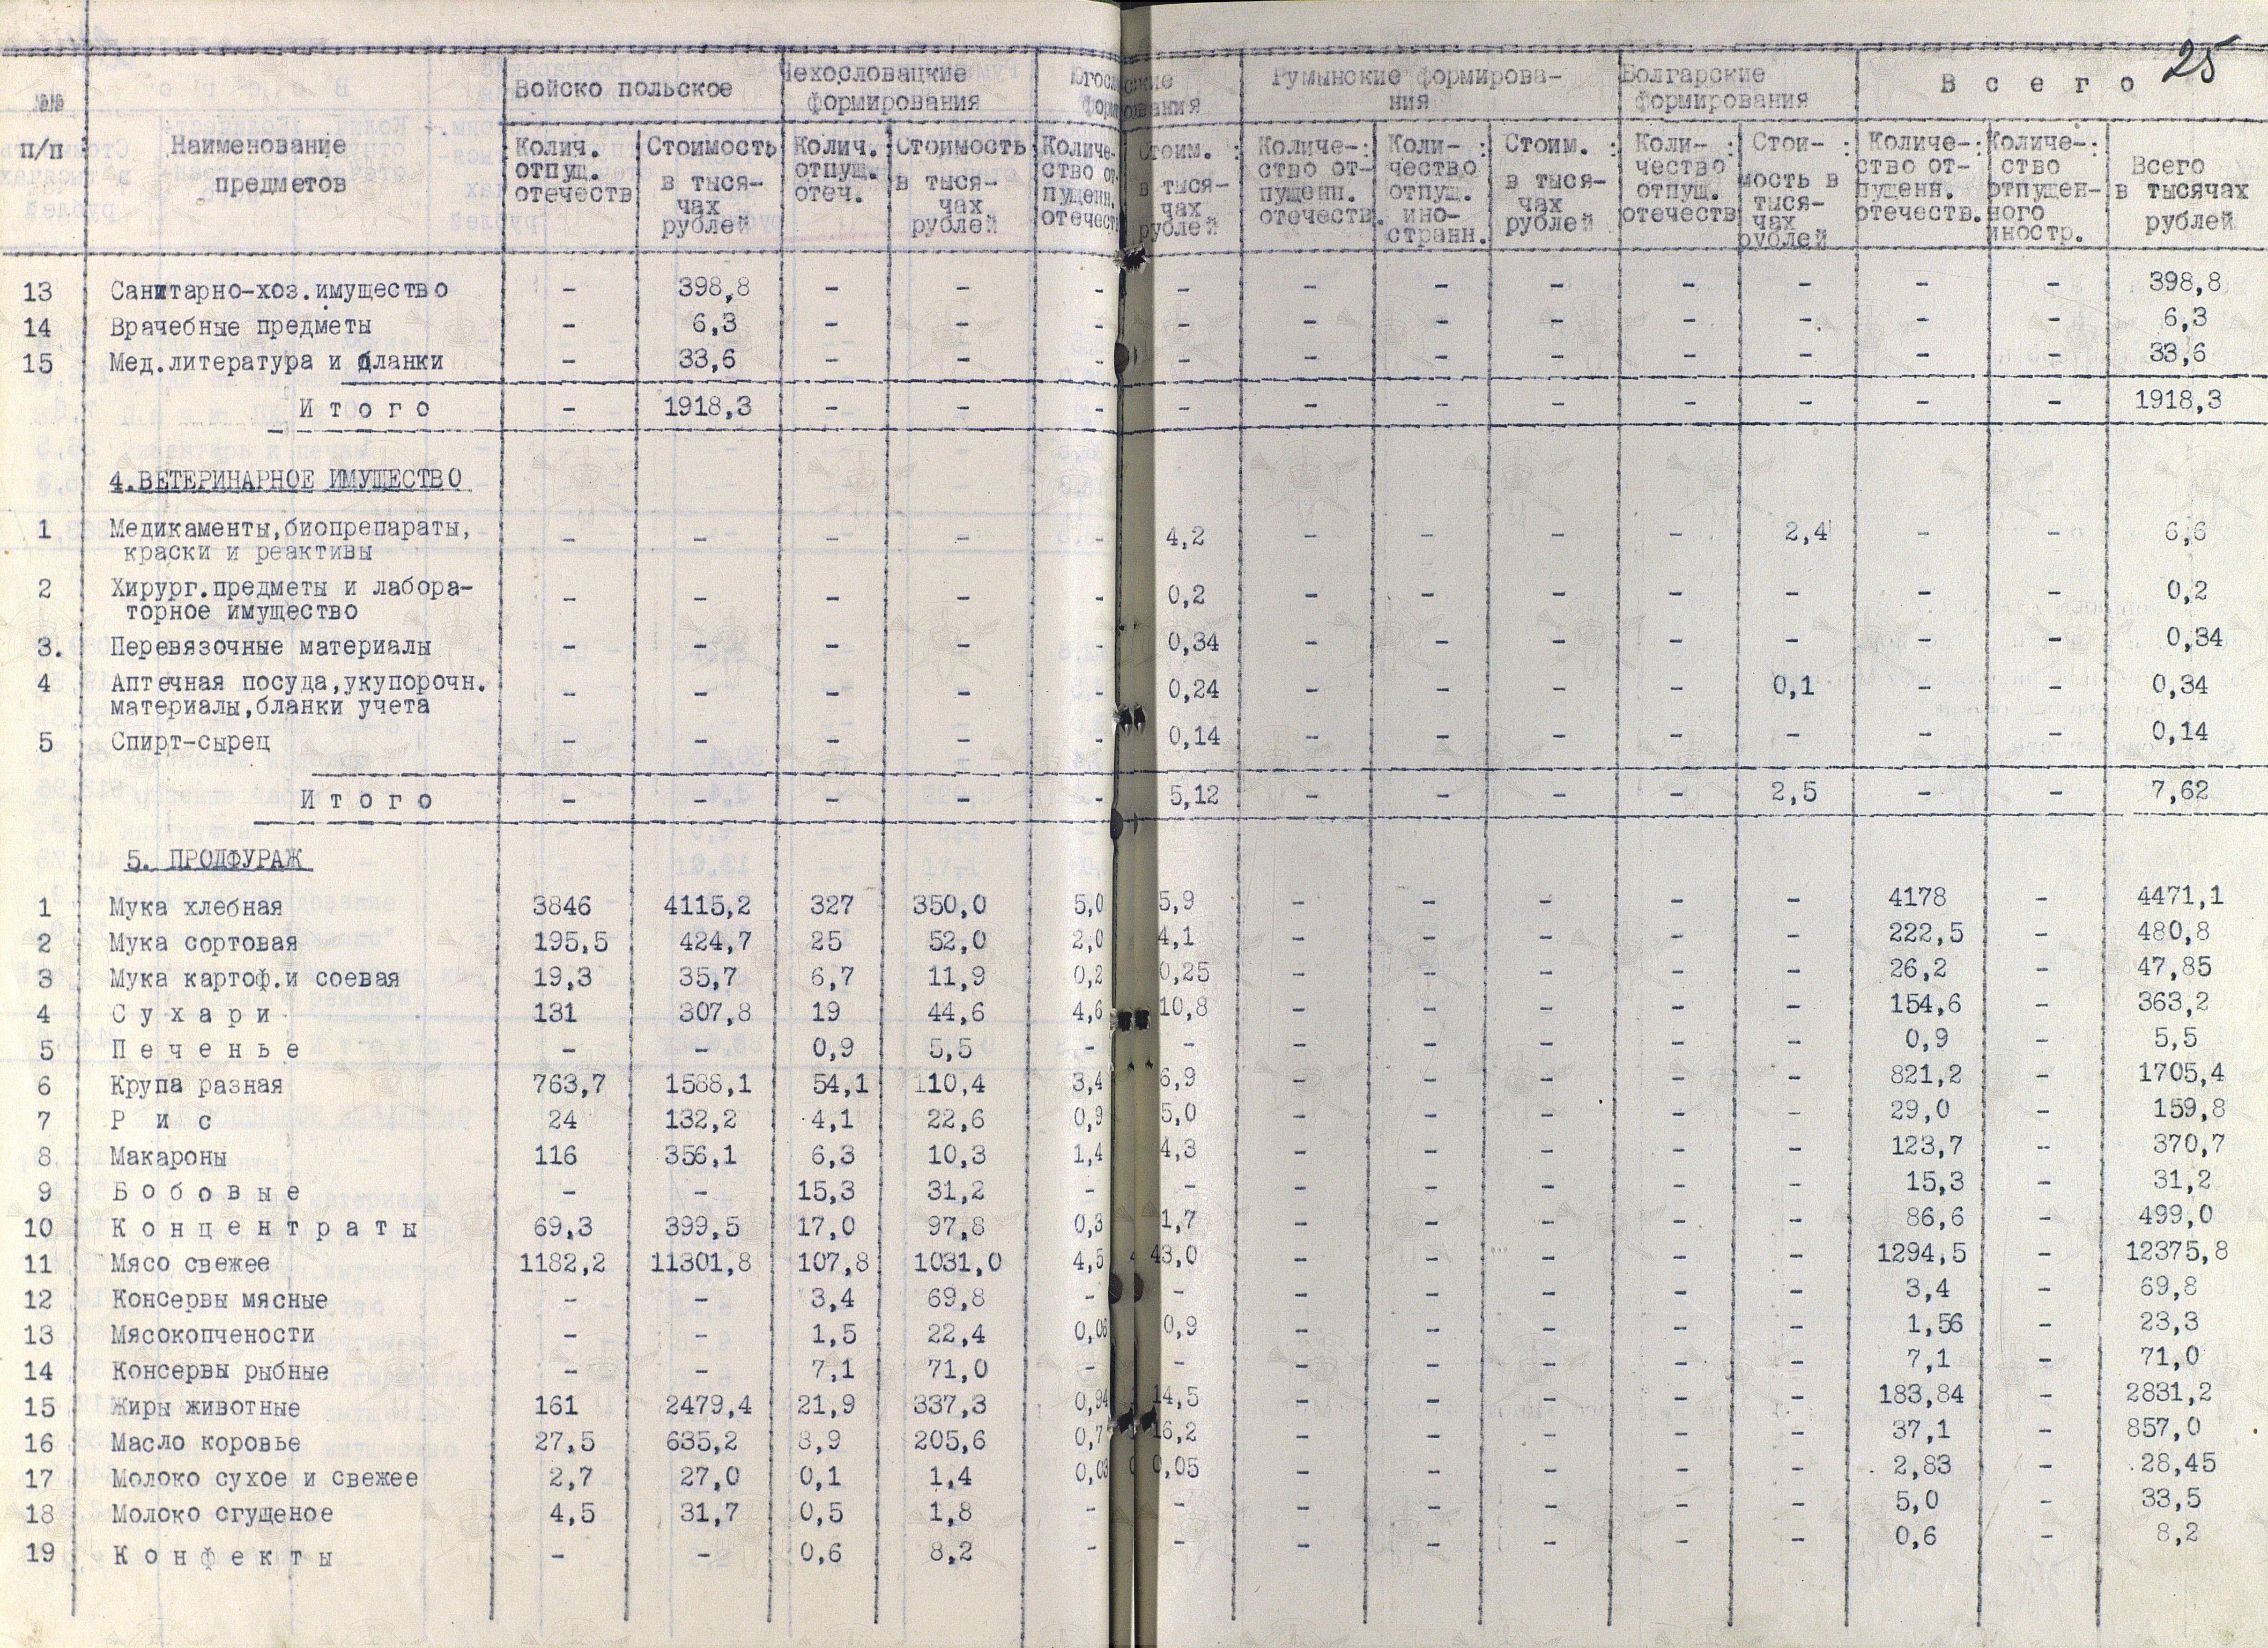 25
№№ п/п
Наименование предметов
Войско польское
Чехословацкие формирования
Румынские формирова-
ния
Болгарские формирования
В с е г о
Колич. отпущ. отечеств
Стоимость в тыся- чах рублей
Колич. отпущ. отеч.
Стоимость в тыся- чах рублей
Количе- ство от- пущенн. отечест
Стоим. в тыся- чах рублей
Количе- ство от- пущенн. отечеств.
Коли- чество отпущ. ино- странн.
Стоим. в тыся- чах рублей
Коли- чество отпущ. отечеств
Стои- мость в тыся- чах рублей
Количе- ство от- пущенн. отечеств.
Количе- ство отпущен- ного иностр.
Всего в тысячах рублей
13 Санитарно-хоз.имущество - 398,8 - - - - - - - - - - - 398,8
14 Врачебные предметы - 6,3 - - - - - - - - - - - 6,3
15 Мед.литература и бланки - 33,6 - - - - - - - - - - - 33,6
И т о г о - 1918,3 - - - - - - - - - - - 1918,3
4.ВЕТЕРИНАРНОЕ ИМУЩЕСТВО
1 Медикаменты,биопрепараты,
краски и реактивы - - - - - 4,2 - - - - 2,4 - - 6,6
2 Хирург.предметы и лабора-
торное имущество - - - - - 0,2 - - - - - - - 0,2
3. Перевязочные материалы - - - - - 0,34 - - - - - - - 0,34
4 Аптечная посуда,укупорочн.
материалы,бланки учета - - - - - 0,24 - - - - 0,1 - - 0,34
5 Спирт-сырец - - - - - 0,14 - - - - - - - 0,14
И т о г о - - - - - 5,12 - - - - 2,5 - - 7,62
5. ПРОДФУРАЖ
1 Мука хлебная 3846 4115,2 327 350,0 5,0 5,9 - - - - - 4178 - 4471,1
2 Мука сортовая 195,5 424,7 25 52,0 2,0 4,1 - - - - - 222,5 - 480,8
3 Мука картоф.и соевая 19,3 35,7 6,7 11,9 0,2 0,25 - - - - - 26,2 - 47,85
4 С у х а р и 131 307,8 19 44,6 4,6 10,8 - - - - - 154,6 - 363,2
5 П е ч е н ь е - - 0,9 5,5 - - - - - - - 0,9 - 5,5
6 Крупа разная 763,7 1588,1 54,1 110,4 3,4 6,9 - - - - - 821,2 - 1705,4
7 Р и с 24 132,2 4,1 22,6 0,9 5,0 - - - - - 29,0 - 159,8
8 Макароны 116 356,1 6,3 10,3 1,4 4,3 - - - - - 123,7 - 370,7
9 Б о б о в ы е - - 15,3 31,2 - - - - - - - 15,3 - 31,2
10 К о н ц е н т р а т ы 69,3 399,5 17,0 97,8 0,3 1,7 - - - - - 86,6 - 499,0
11 Мясо свежее 1182,2 11301,8 107,8 1031,0 4,5 43,0 - - - - - 1294,5 - 12375,8
12 Консервы мясные - - 3,4 69,8 - - - - - - - 3,4 - 69,8
13 Мясокопчености - - 1,5 22,4 0,06 0,9 - - - - - 1,56 - 23,3
14 Консервы рыбные - - 7,1 71,0 - - - - - - - 7,1 - 71,0
15 Жиры животные 161 2479,4 21,9 337,3 0,94 14,5 - - - - - 183,84 - 2831,2
16 Масло коровье 27,5 635,2 8,9 205,6 0,7 16,2 - - - - - 37,1 - 857,0
17 Молоко сухое и свежее 2,7 27,0 0,1 1,4 0,03 0,05 - - - - - 2,83 - 28,45
18 Молоко сгущеное 4,5 31,7 0,5 1,8 - - - - - - - 5,0 - 33,5
19 К о н ф е к т ы - - 0,6 8,2 - - - - - - - 0,6 - 8,2